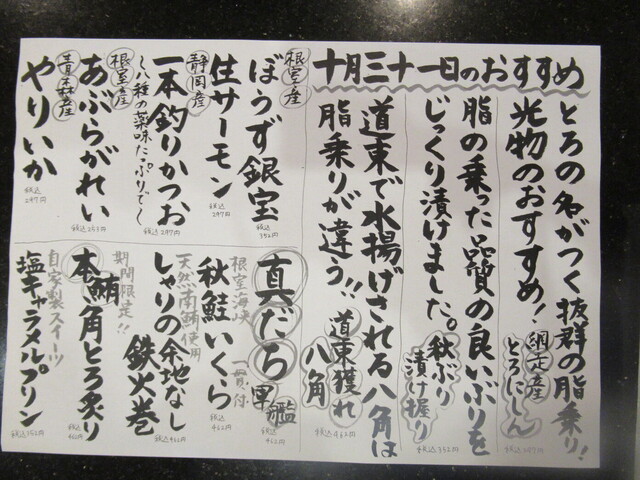 十月三十一日のおすすめ
とろの名がつく抜群の脂乗り!
光物のおすすめ!
網走産
とろにしん
税込297円
脂の乗った品質の良いぶりを
じっくり漬けました。
秋ぶり
漬け握り
税込352円
道東で水揚げされる八角は
脂乗りが違う!!
道東獲れ
八角
税込462円
根室産
ぼうず銀宝
税込352円
生サーモン
税込297円
静岡産
一本釣りかつお
〜八種の薬味たっぷりで〜
税込297円
根室産
あぶらがれい
税込253円
青森産
やりいか
税込297円
真だち
軍艦
税込462円
根室海峡
秋鮭いくら
一貫付
税込462円
天然南鮪使用
しゃりの余地なし
鉄火巻
税込462円
期間限定!!
本鮪角とろ炙り
税込462円
自家製スイーツ
塩キャラメルプリン
税込352円